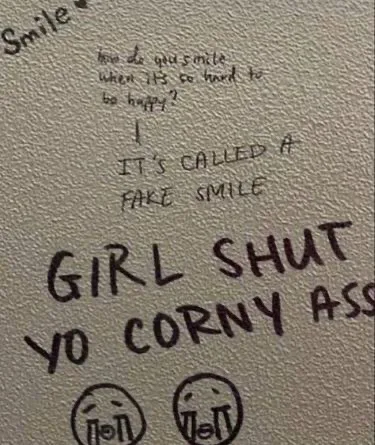 Smile
how do you smile
when it's so hard to
be happy?
IT'S CALLED A
FAKE SMILE
GIRL SHUT
YO CORNY ASS